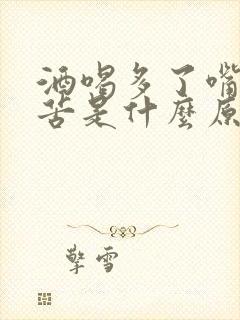 酒喝多了嘴
苦是什麼原
擎雪